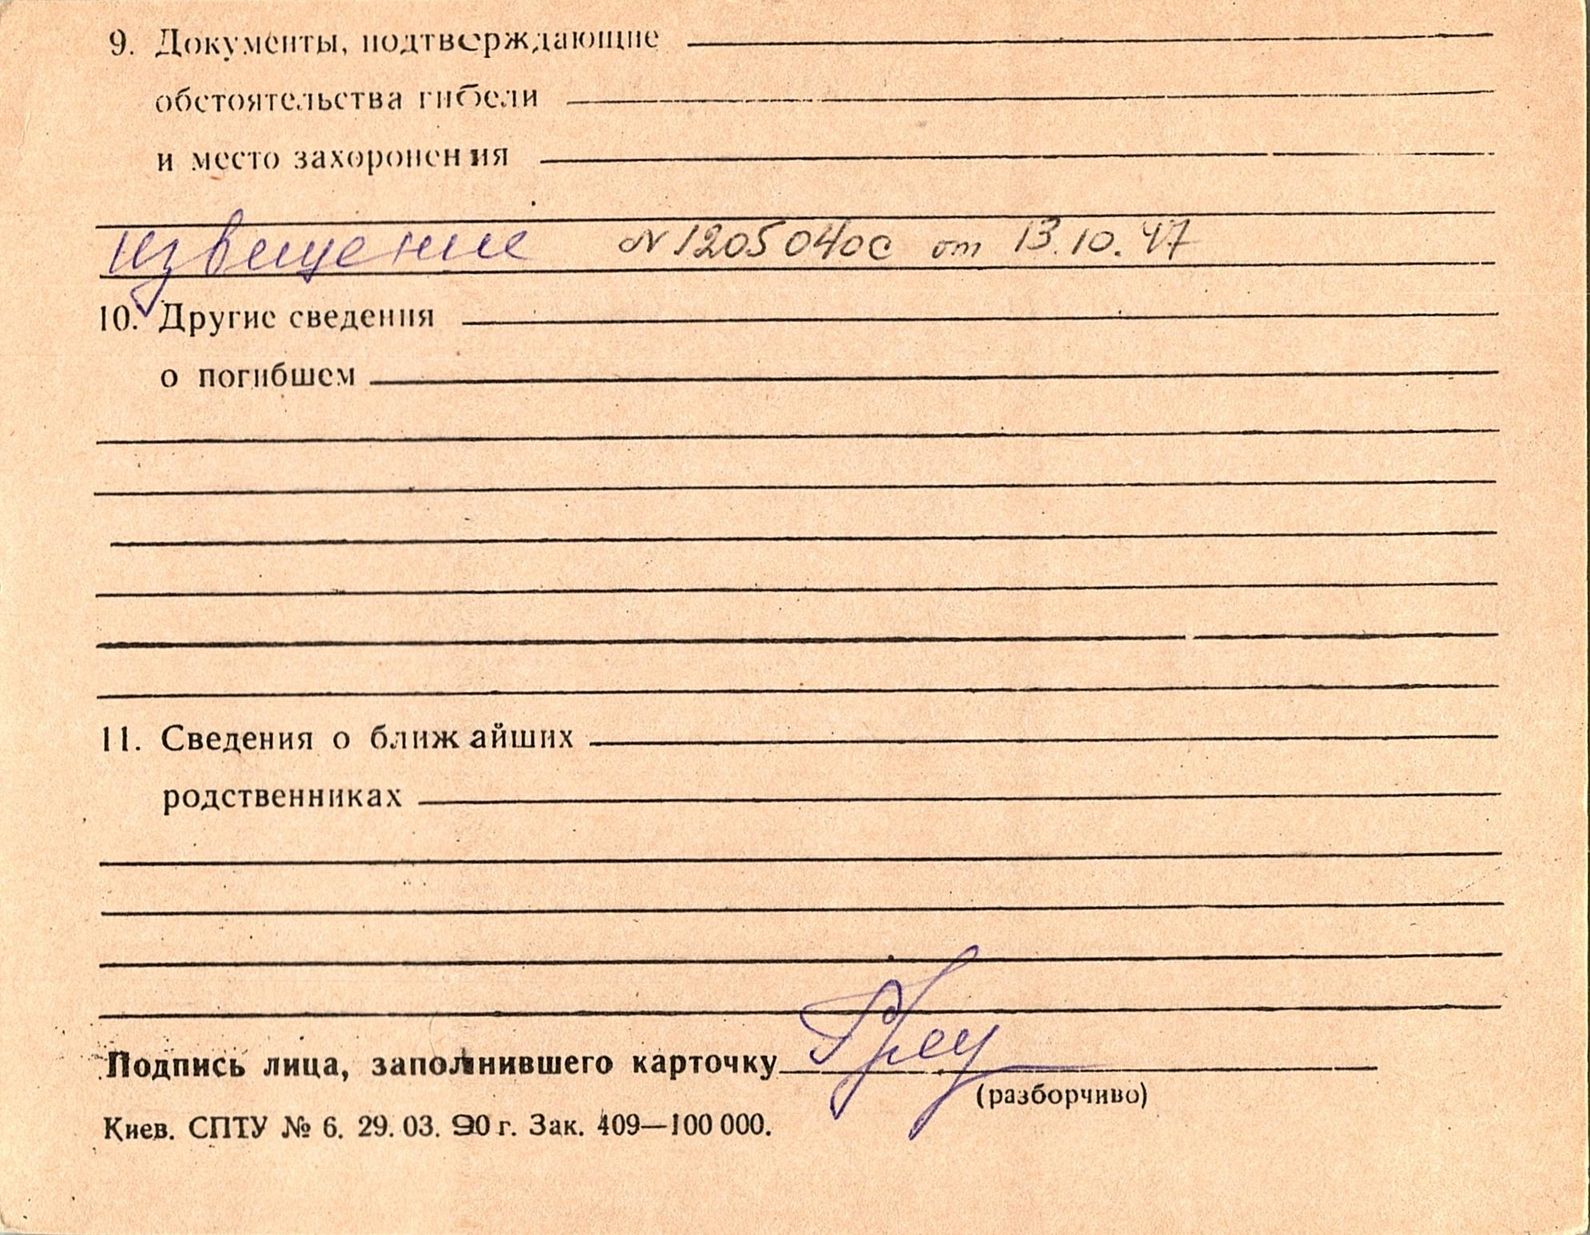 9. Документы, подтверждающие
обстоятельства гибели
и место захоронения
извещение № 1205040с от 13.10.47
10. Другие сведения
о погибшем
11. Сведения о ближайших
родственниках
Подпись лица, заполнившего карточку
(разборчиво)
Киев. СПТУ № 6. 29.03.90 г. Зак. 409—100 000.